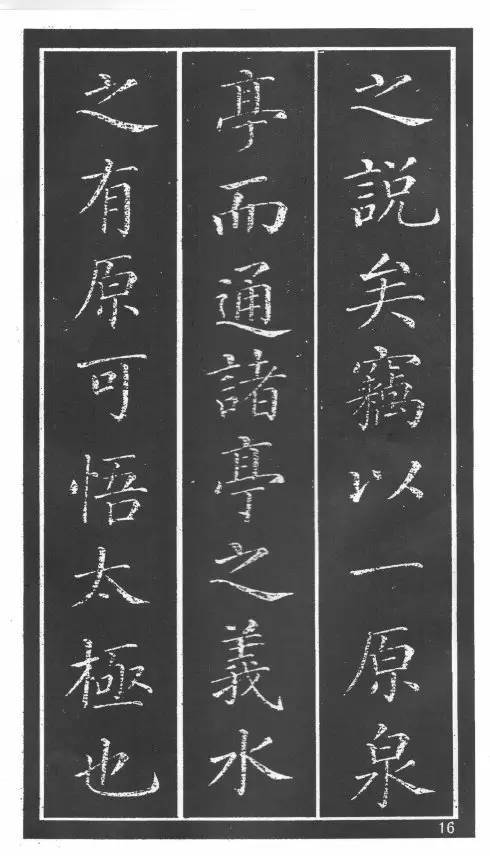 之説矣竊以一原泉
亭而通諸亭之義水
之有原可悟太極也
16